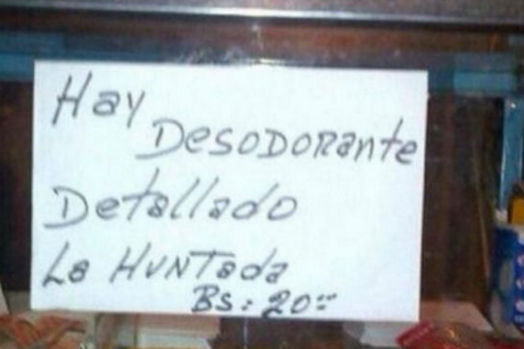 Hay
Desodorante
Detallado
La Huntada
Bs: 20=